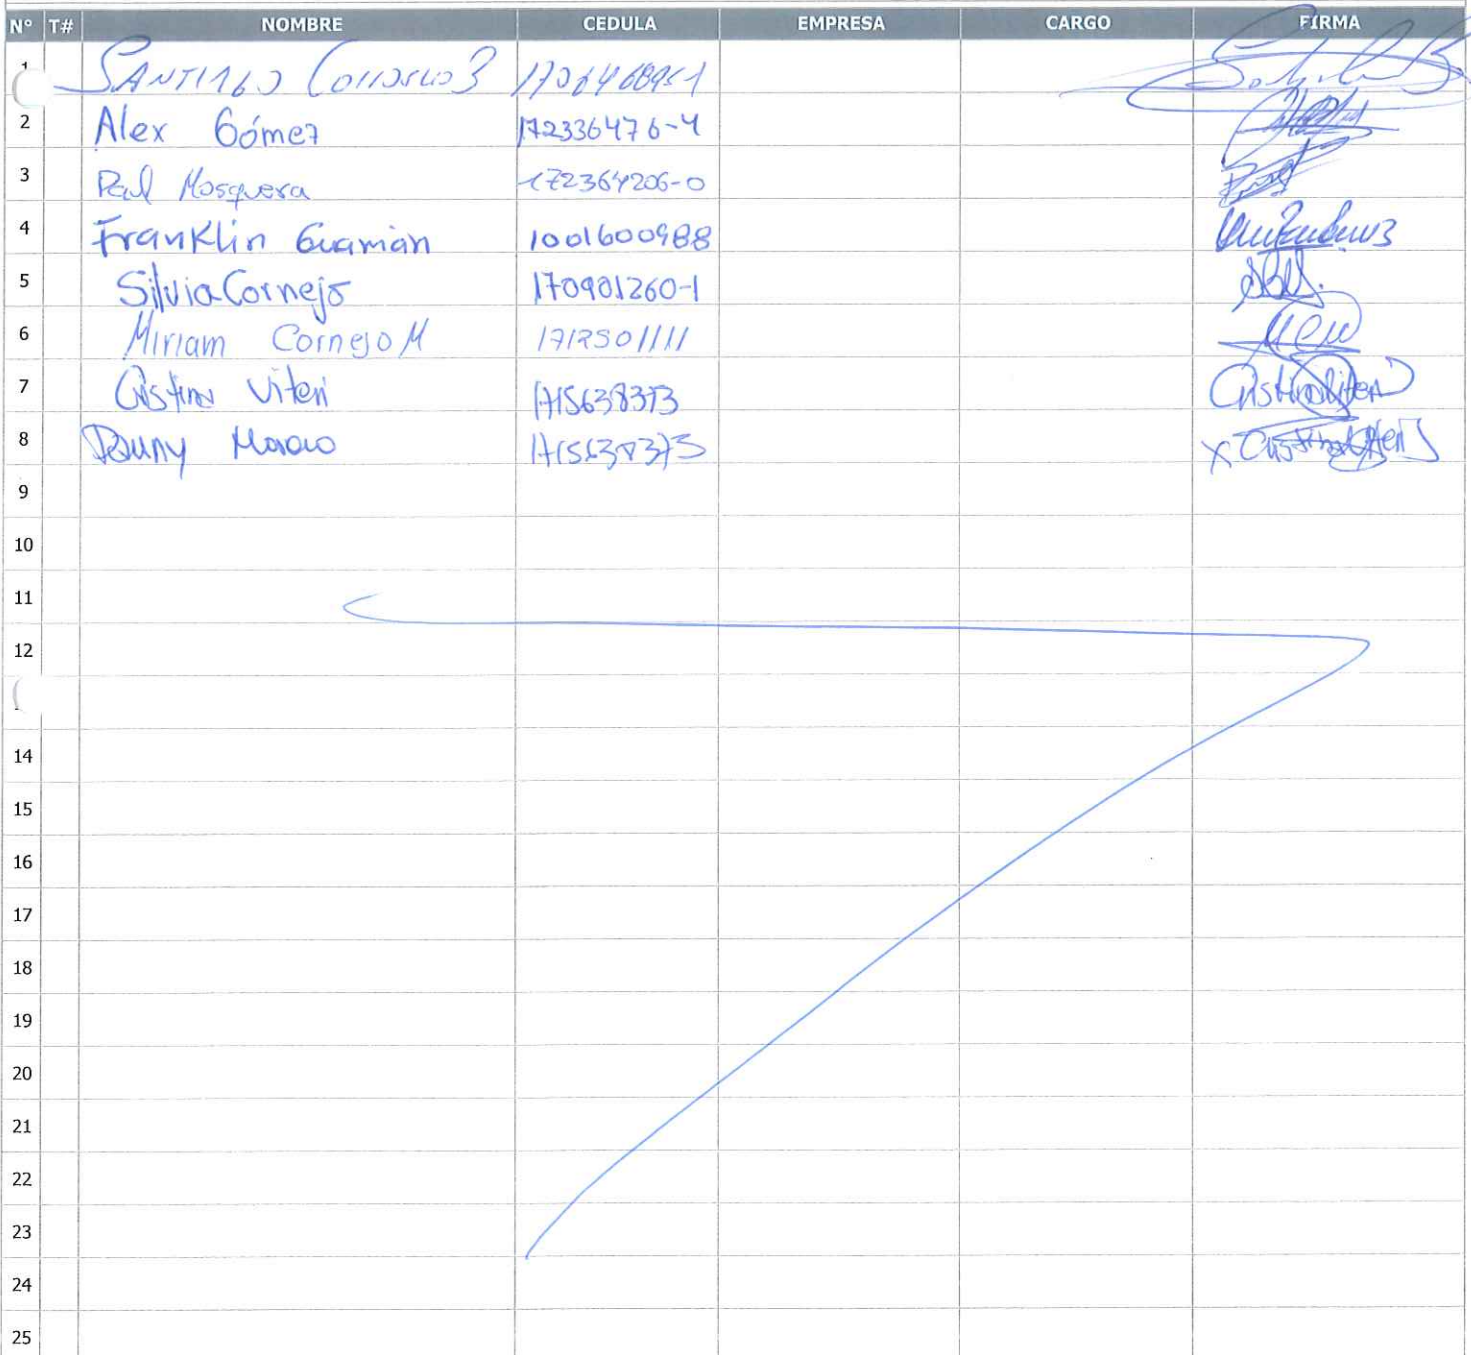 N° T# NOMBRE CEDULA EMPRESA CARGO FIRMA
1 SANTIAGO
2 Alex Gómez 172336476-4
3 Paul Mosquera 172364206-0
4 Franklin Guamán 1001600988
5 Silvia Cornejo 170901260-1
6 Miriam Cornejo M 1712501111
7 Cristina Viteri 1715638373 Cristina Viteri
8 Danny 1715638373 x Cristina Viteri
9
10
11
12
14
15
16
17
18
19
20
21
22
23
24
25